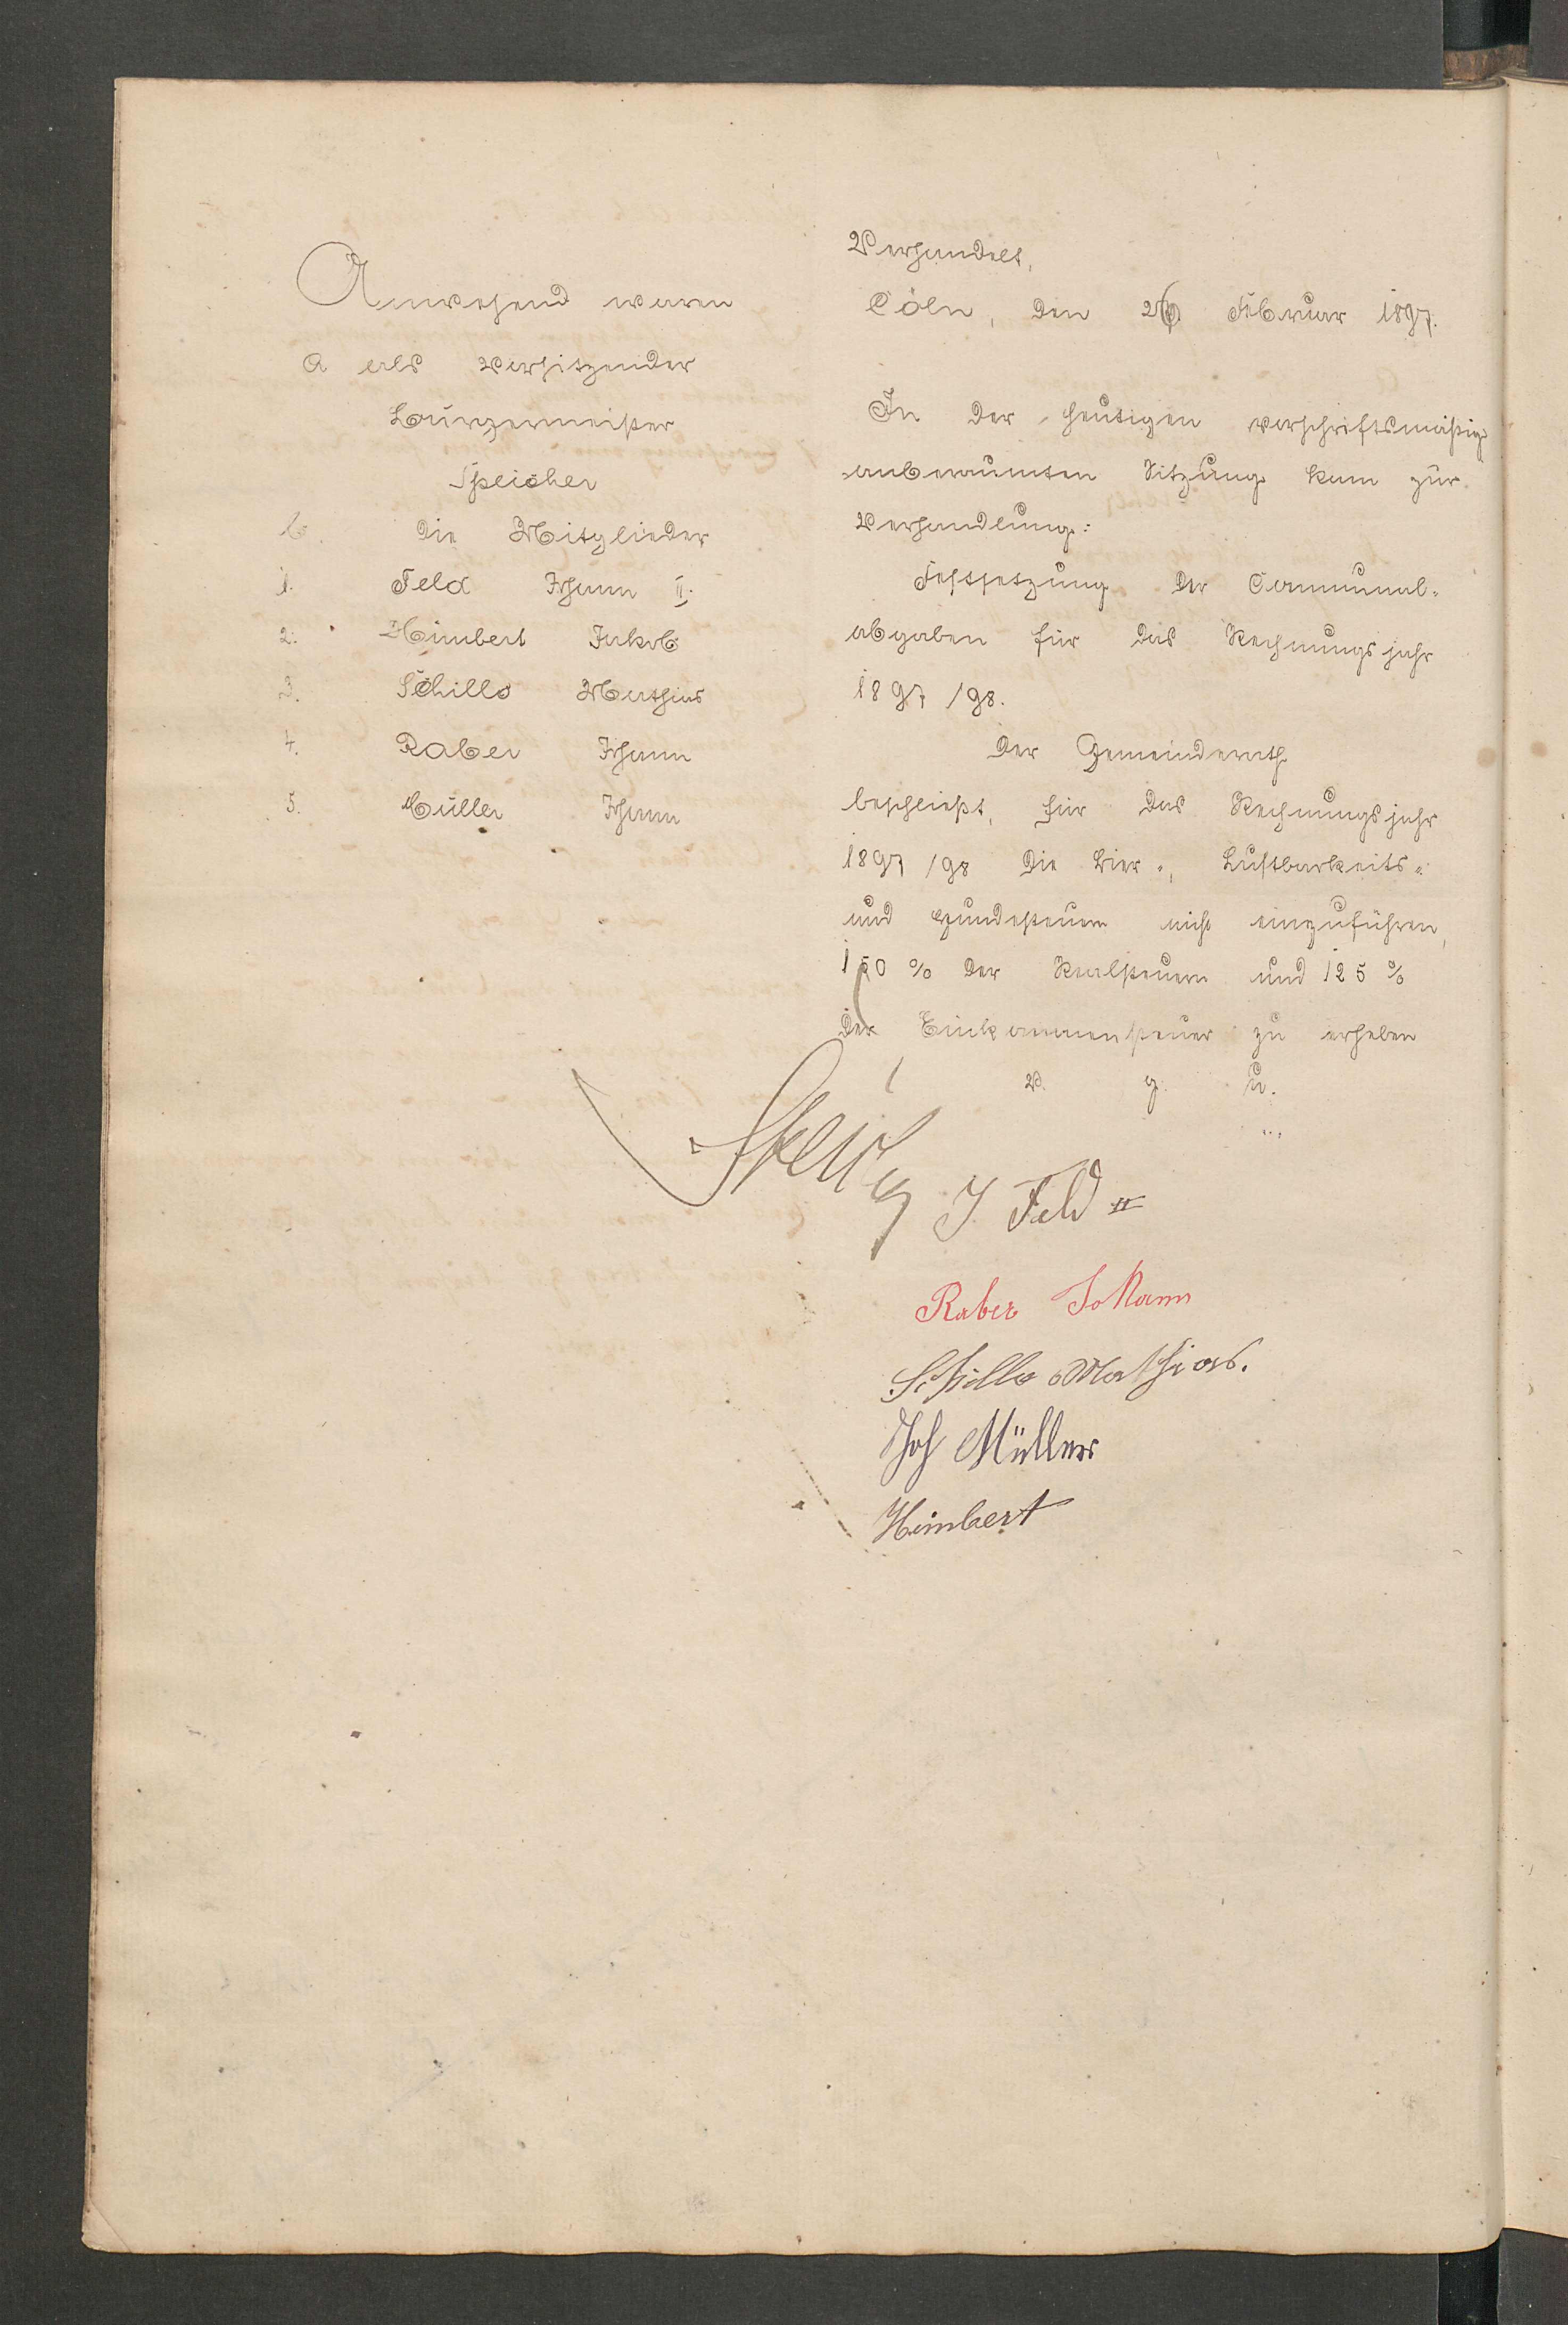 Anwesend waren
a als Vorsitzender
Bürgermeister
Speicher
b. die Mitglieder
1. Feld Johann II.
2. Himbert Jakob
3. Schillo Mathias
4. Raber Johann
5. Müller Johann
Verhandelt,
Cöln, den 26 Februar 1897.
In der heutigen vorschriftsmäßig
anberaumten Sitzung kam zur
Verhandlung:
Festsetzung der Communal-
abgaben für das Rechnungsjahr
1897/98.
Der Gemeinderath
beschließt, für das Rechnungsjahr
1897/98 die Bier-, Lustbarkeits-
und Hundesteuern nicht einzuführen,
150 % der Realsteuern und 125 %
der Einkommensteuer zu erheben
v. g. u.
Speicher
J. Feld II
Raber Johann
Schillo Mathias.
Joh Müller
Himbert